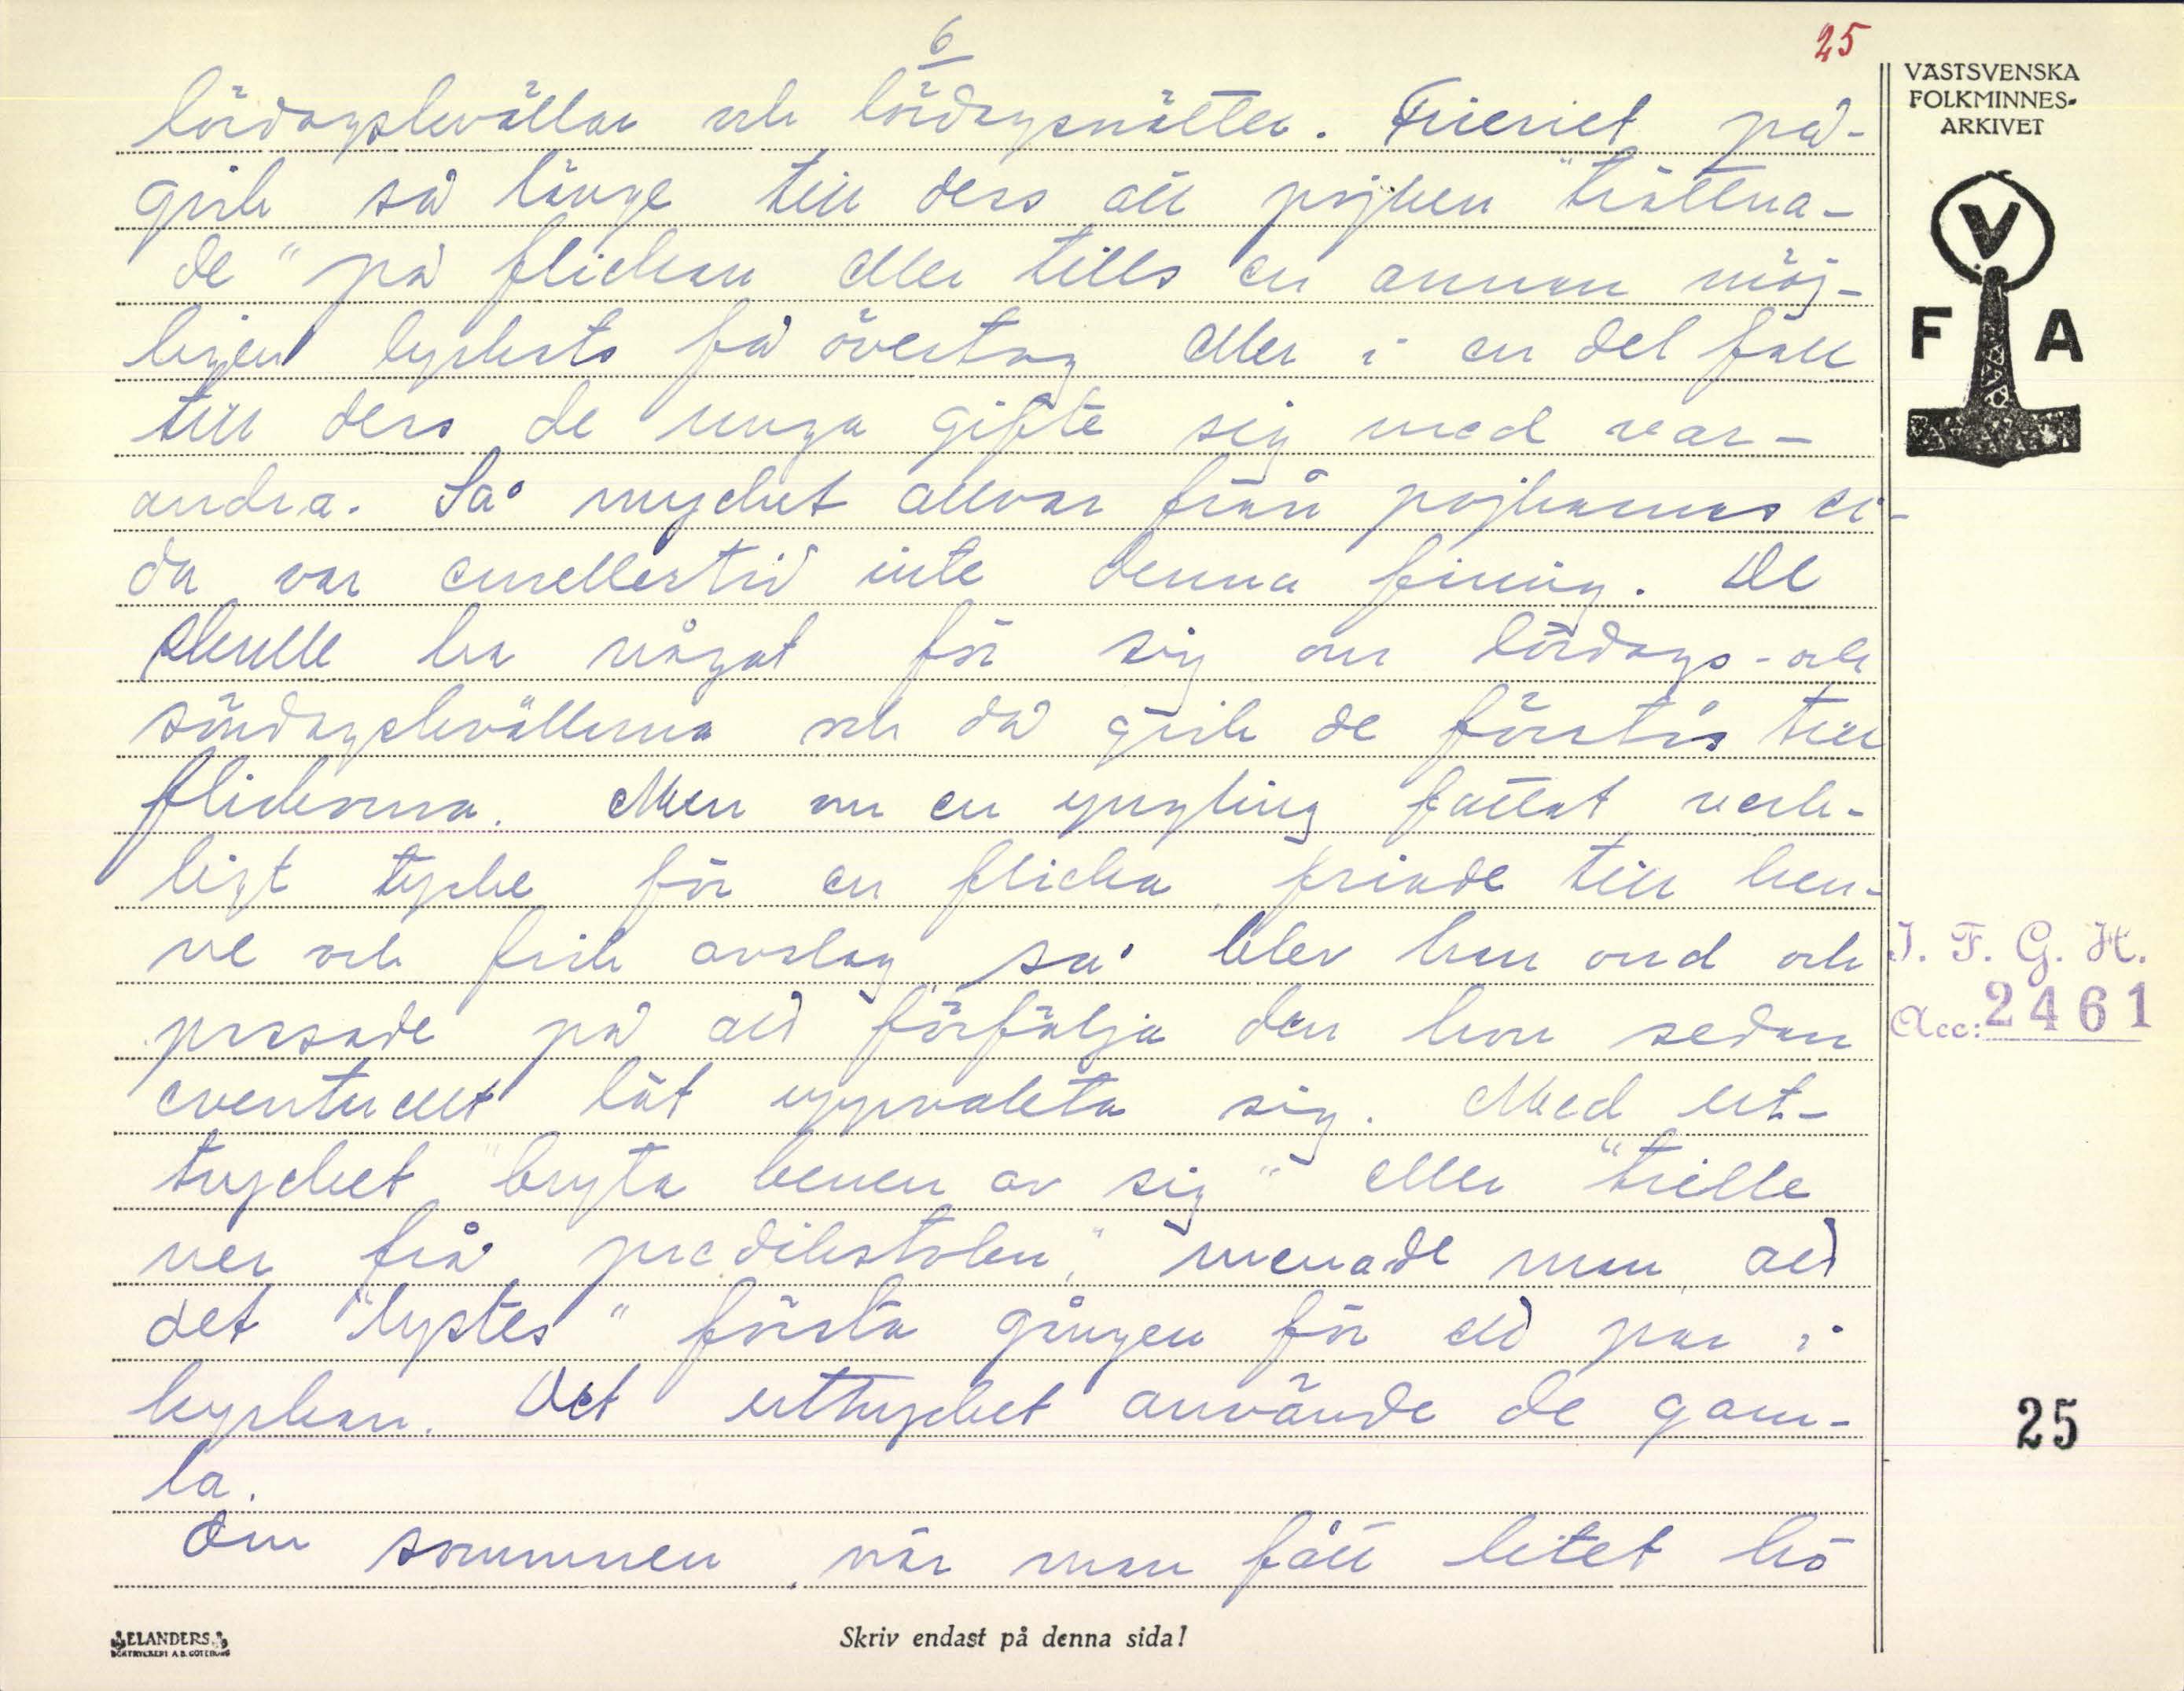 6
25
lördagskvällar och lördagsnätter. Frieriet på-
gick så länge till dess att pojken "tröttna-
de" på flickan eller tills en annan möj-
ligen lyckats få övertag eller i en del fall
till dess de unga gifte sig med var-
andra. Så mycket allvar från pojkarnas si-
da var emellertid inte denna friing. De
skulle ha något för sig om lördags- och
söndagskvällarna och då gick de förstås till
flickorna. Men om en yngling fattat verk-
ligt tycke för en flicka, friade till hen-
ne och fick avslag, så blev han ond och
passade på att förfölja den hon sedan
eventuellt lät uppvakta sig. Med ut-
trycket "bryta benen av sig" eller "trille
ner frå predikstolen", menade man att
det "lystes" första gången för ett par i
kyrkan. Det uttrycket använde de gam-
la.
Om sommaren, när man fått litet hö
VÄSTSVENSKA
FOLKMINNES-
ARKIVET
V
F A
I. F. G. H.
Acc: 2461
25
ELANDERS
BOKTRYCKERI A.B. GÖTEBORG
Skriv endast på denna sida!